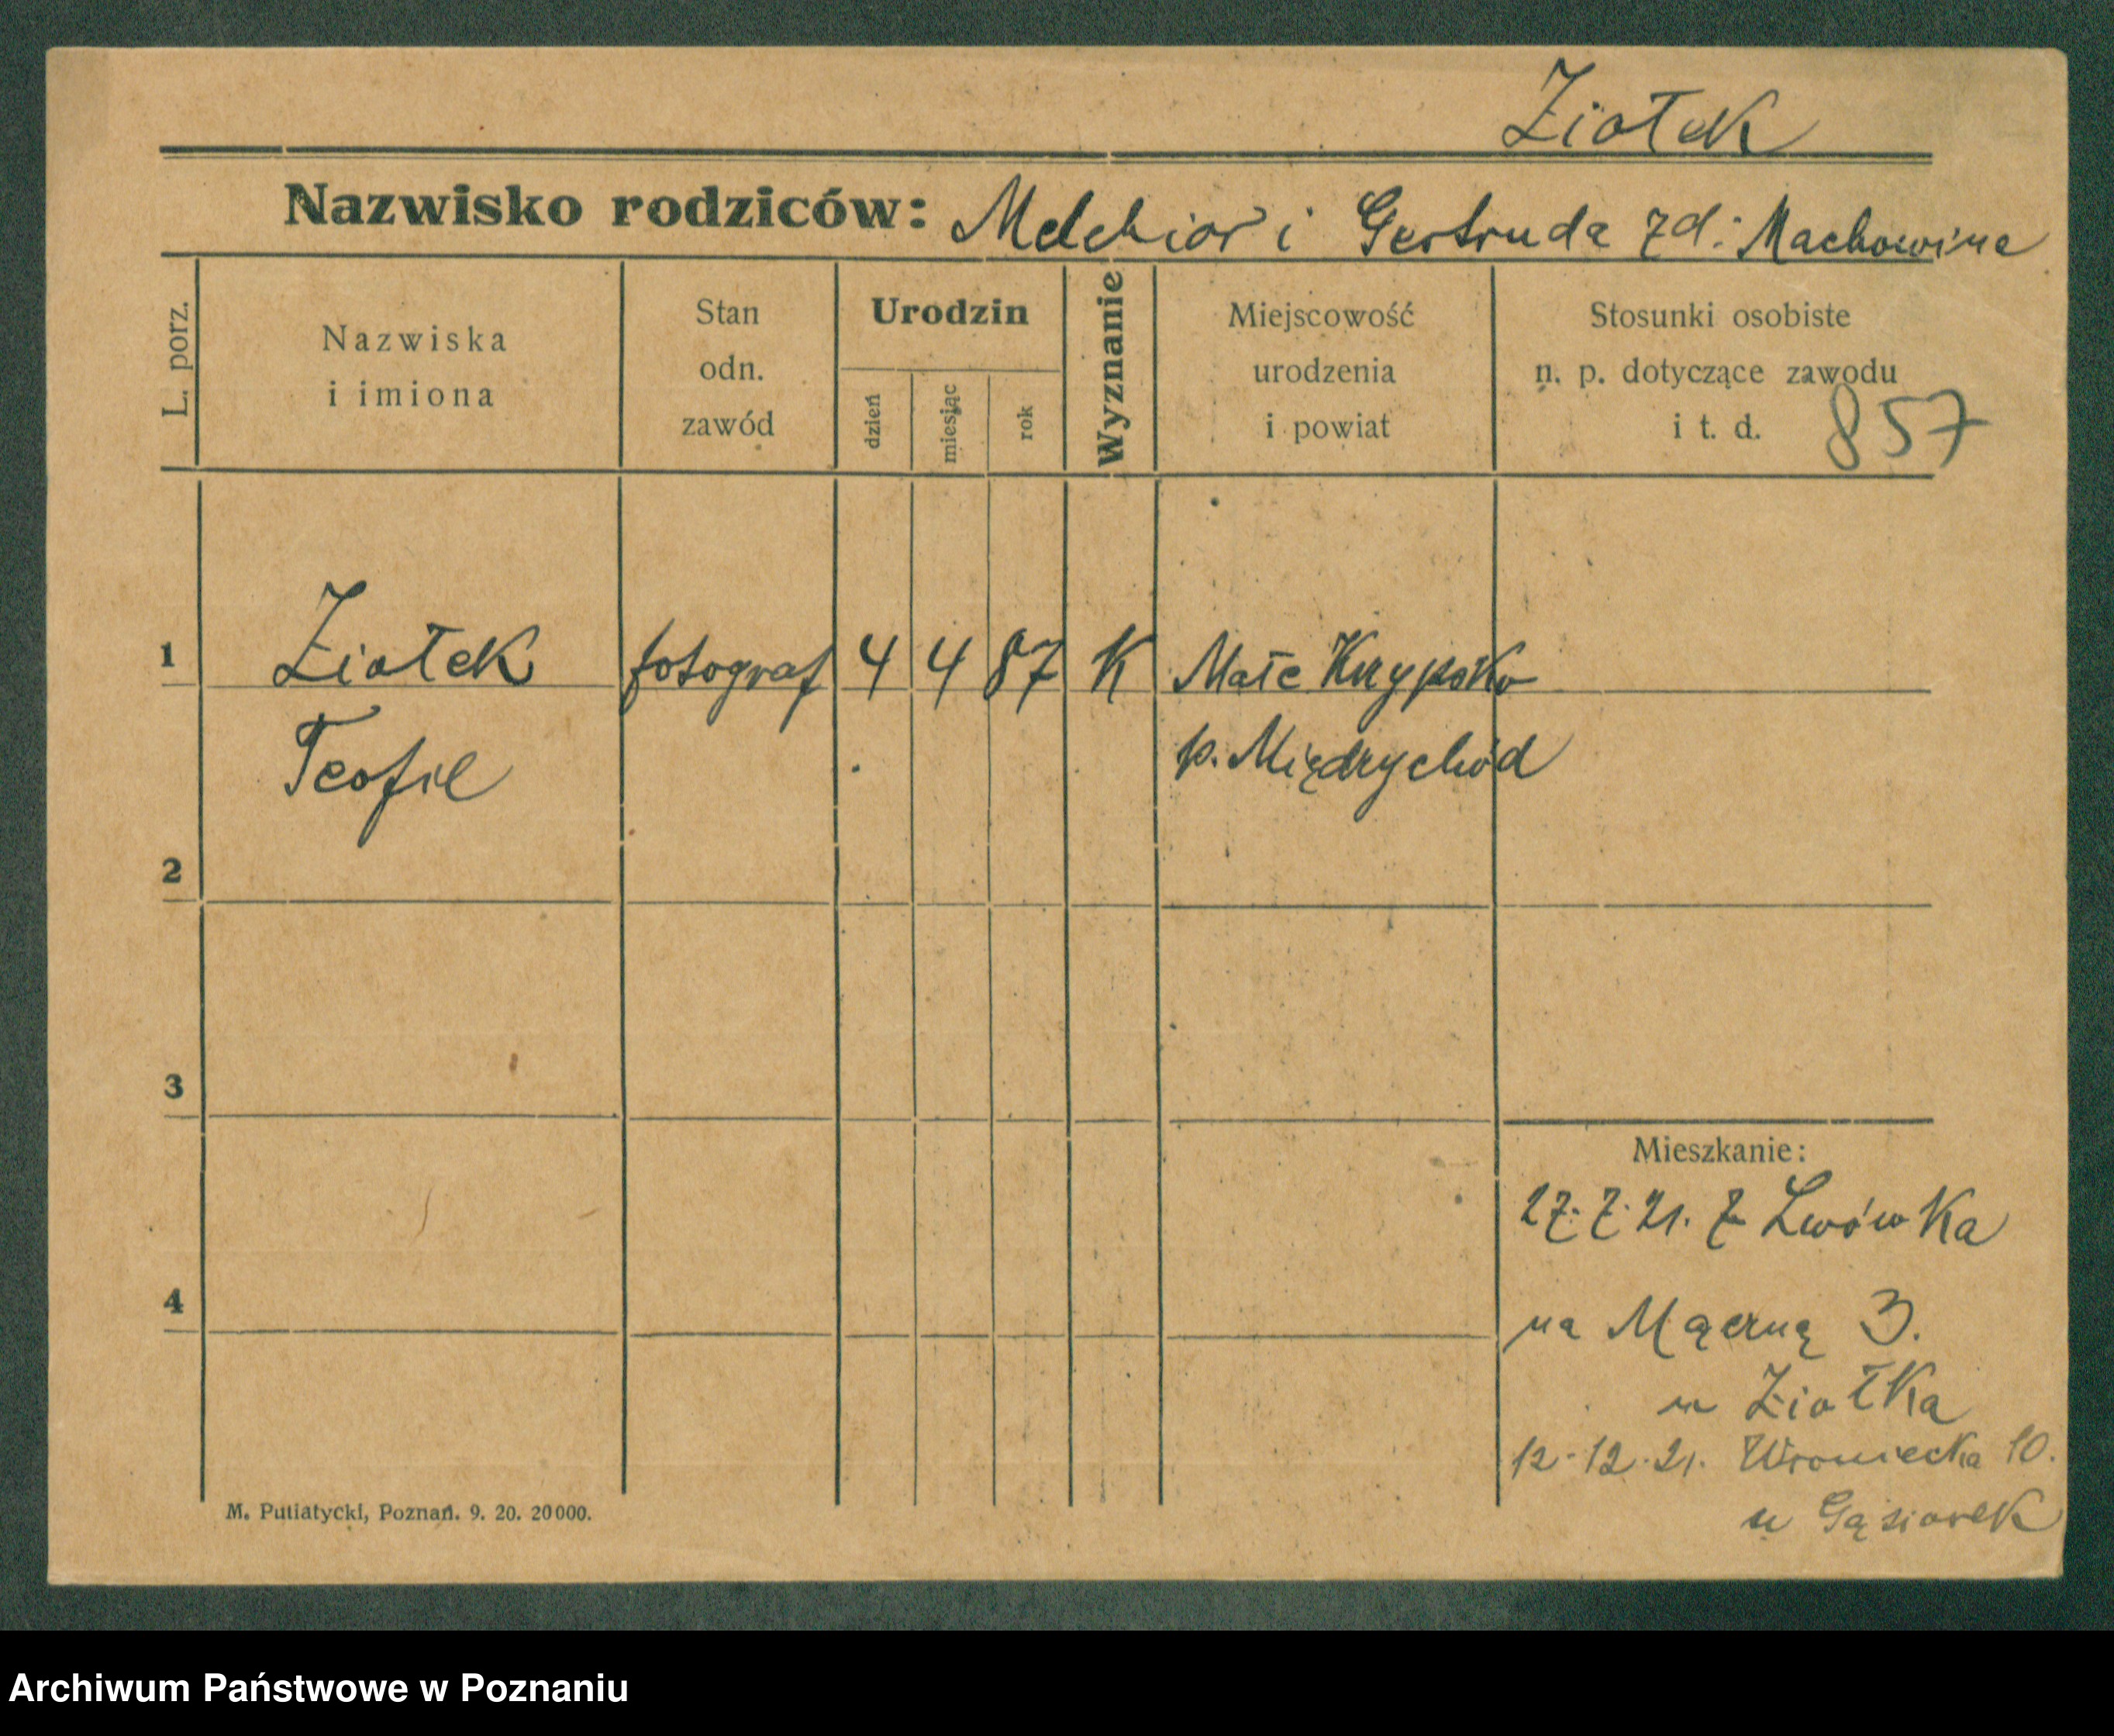 Ziołek
Nazwisko rodziców: Melchior i Gertruda zd: Machowina
L. porz.
Nazwiska
i imiona
Stan
odn.
zawód
Urodzin
dzień
miesiąc
rok
Wyznanie
Miejscowość
urodzenia
i powiat
Stosunki osobiste
n. p. dotyczące zawodu
i t. d.
857
1 Ziołek fotograf 4 4 87 K Małe Krypsko
Teofil p. Międrychód
2
3
4
Mieszkanie:
27. 7. 21. z Lwówka
na Mączną 3.
u Ziołka
12-12-21. Wroniecka 10.
u Gąsiorek
M. Putiatycki, Poznań. 9. 20. 20000.
Archiwum Państwowe w Poznaniu